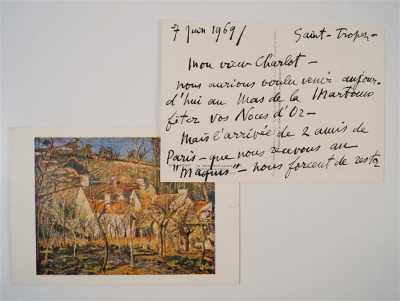 7 juin 1969/ Saint-Tropez-
Mon vieux Charlot-
nous aurions voulu venir aujour-
d'hui au Mas de la Martoune
fêter vos Noces d'Or-
Mais l'arrivée de 2 amis de
Paris- que nous recevons au
"Maquis"- nous forcent de rester